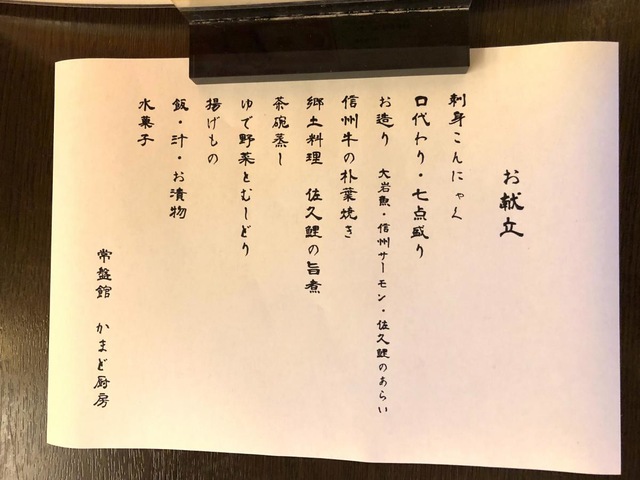 お献立
刺身こんにゃく
口代わり・七点盛り
お造り 大岩魚・信州サーモン・佐久鯉のあらい
信州牛の朴葉焼き
郷土料理 佐久鯉の旨煮
茶碗蒸し
ゆで野菜とむしどり
揚げもの
飯・汁・お漬物
水菓子
常盤館 かまど厨房